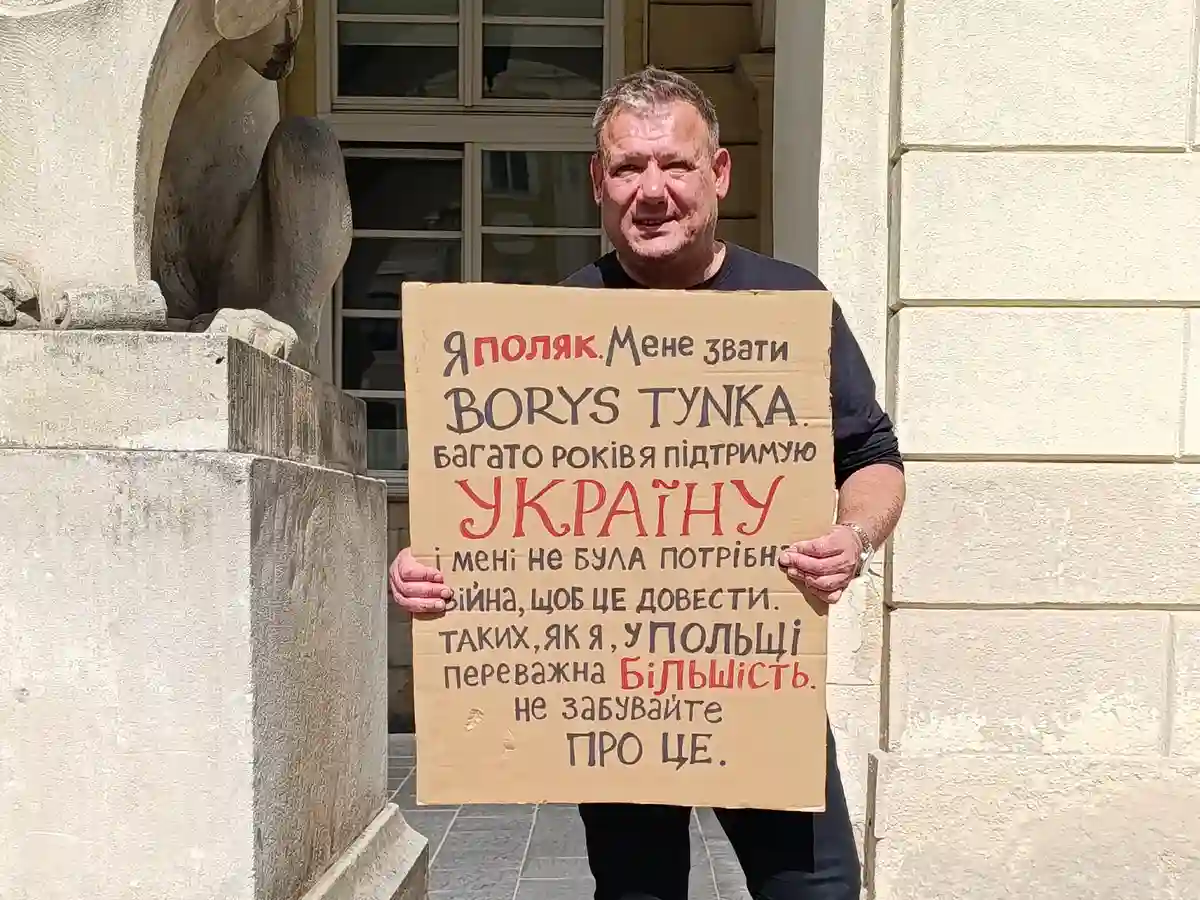 Я ПОЛЯК. Мене звати
BORYS TYNKA.
Багато років я підтримую
УКРАЇНУ
і мені не була потрібна
війна, щоб це довести.
Таких, як я, у ПОЛЬЩІ
переважна БІЛЬШІСТЬ.
не забувайте
ПРО ЦЕ.